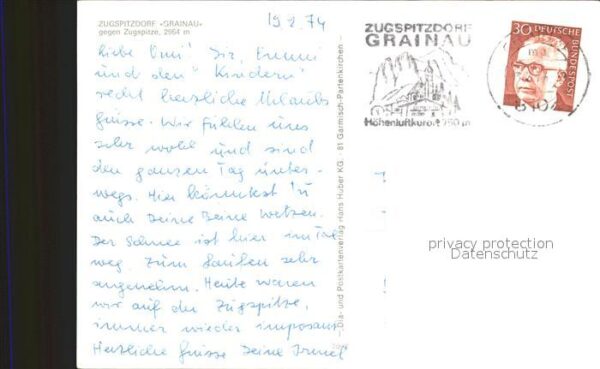 ZUGSPITZDORF «GRAINAU»
gegen Zugspitze, 2964 m
19.2.74
Liebe Omi! Dir, Emmi
und den "Kindern"
recht herzliche Urlaubs
grüsse. Wir fühlen uns
sehr wohl und sind
den ganzen Tag unter-
wegs. Hier könntest Du
auch Deine Beine wetzen.
Der Schnee ist hier im Tal
weg. Zum Laufen sehr
angenehm. Heute waren
wir auf der Zugspitze,
immer wieder imposant
Herzliche Grüsse Deine Irmel
Dia- und Postkartenverlag Hans Huber KG. · 81 Garmisch-Partenkirchen
ZUGSPITZDORF
GRAINAU
Höhenluftkurort 750 m
30
DEUTSCHE
BUNDESPOST
8104
privacy protection
Datenschutz